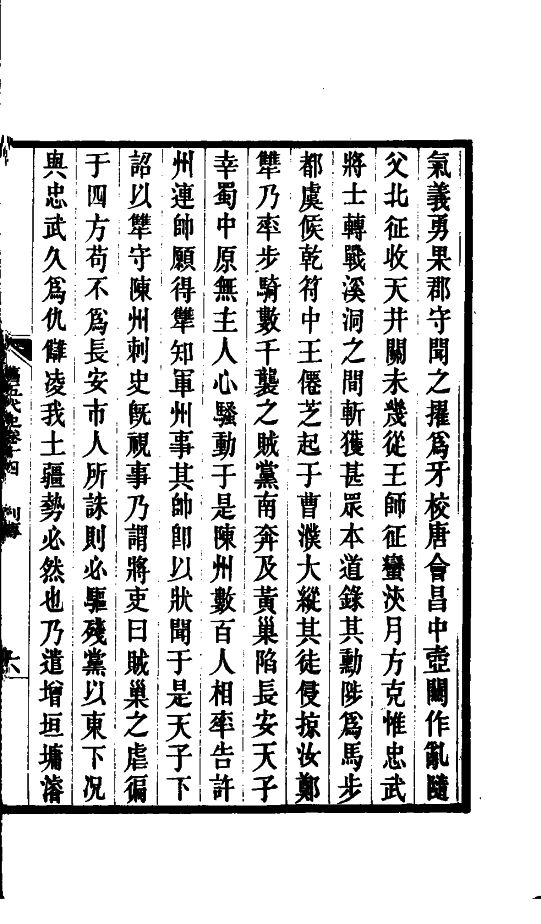 氣義勇果郡守聞之擢爲牙校唐會昌中壺關作亂隨
父北征收天井關未幾從王師征蠻浹月方克惟忠武
將士轉戰溪洞之間斬獲甚眾本道錄其勳陟爲馬步
都虞候乾符中王僊芝起于曹濮大縱其徒侵掠汝鄭
犨乃率步騎數千襲之賊黨南奔及黃巢陷長安天子
幸蜀中原無主人心騷動于是陳州數百人相率告許
州連帥願得犨知軍州事其帥卽以狀聞于是天子下
詔以犨守陳州刺史旣視事乃謂將吏曰賊巢之虐徧
于四方苟不爲長安市人所誅則必驅殘黨以東下況
與忠武久爲仇讎凌我土疆勢必然也乃遣增垣墉濬
舊五代史卷十四 列傳
六